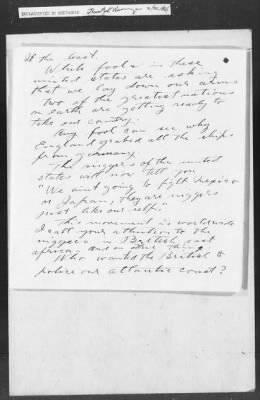 At the last.
White fools in these
united states are asking
that we lay down our arms
Two of the greatest nations
on earth are getting ready to
take our country.
Any fool can see why
England grabed all the ships
from germany
The niggers of the united
states will now tell you
"We aint going to fight Mexico
or Japan, they are niggers
just like our self."
This movement is worldwide
I call your attention to the
niggers in British east
africa
Who wanted the British to
police our atlantic coast?